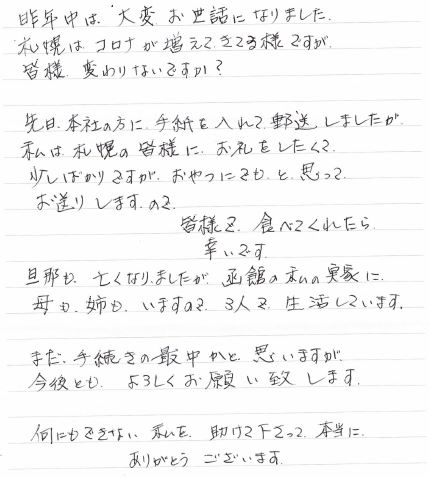 昨年中は、大変お世話になりました。
札幌は コロナが増えてきてる様ですが、
皆様、変わりないですか？
先日、本社の方に、手紙を入れて、郵送しましたが、
私は、札幌の皆様に、お礼をしたくて、
少しばかりですが、おやつにでも、と、思って、
お送りしますので、
皆様で、食べてくれたら、
幸いです。
旦那も、亡くなりましたが、函館の私の実家に、
母も、姉も、いますので、3人で、生活しています。
まだ、手続きの最中かと、思いますが、
今後とも、よろしくお願い致します。
何にもできない、私を、助けて下さって、本当に、
ありがとう ございます。